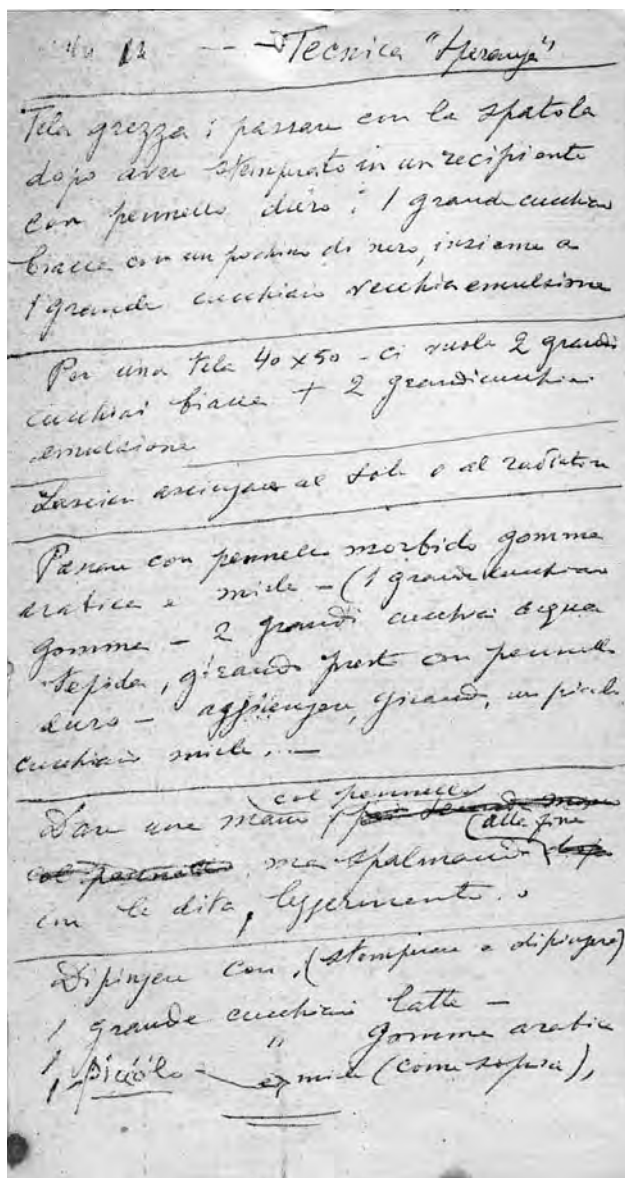 12 -- Tecnica "Speranza"
Tela grezza : passare con la spatola
dopo aver stemprato in un recipiente
con pennello duro : 1 grande cucchiaio
biacca con un pochino di nero, insieme a
1 grande cucchiaio vecchia emulsione
Per una tela 40 x 50 - ci vuole 2 grandi
cucchiai biacca + 2 grandi cucchiai
emulsione
Lasciar asciugare al sole o al radiatore
Passare con pennello morbido gomma
arabica e miele - (1 grande cucchiaio
gomma - 2 grandi cucchiai acqua
tepida, girando presto con pennello
duro - aggiungere, girando, un piccolo
cucchiaio miele. -
Dare una mano col pennello
ma spalmando (alla fine
con le dita, leggermente.
Dipingere con, (stemperare e dipingere)
1 grande cucchiaio latte -
1 " " gomma arabica
1 piccolo - miele (come sopra),